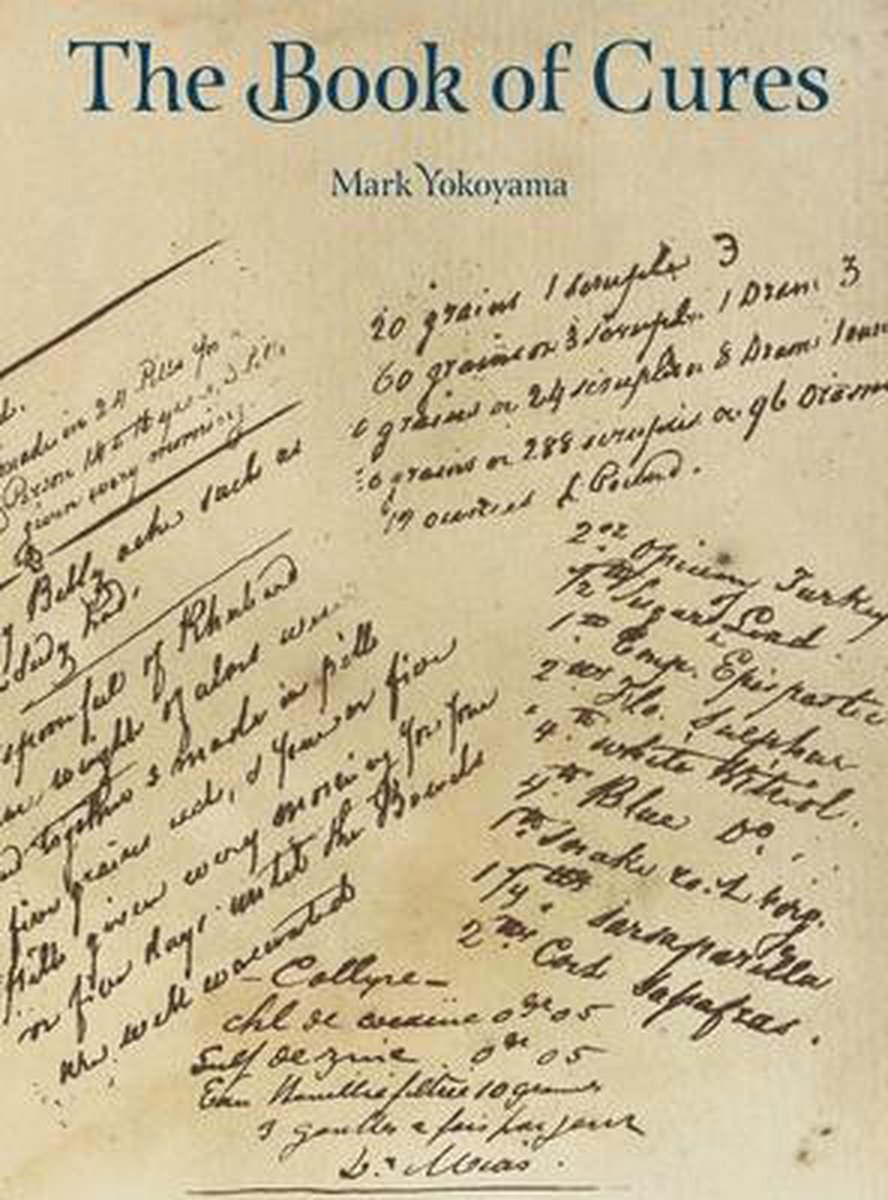 The Book of Cures
Mark Yokoyama
20 grains 1 scruple 3
60 grains or 3 scruples 1 Dram 3
grains or 24 scruples or 8 Drams 1 oun
grains or 288 scruples or 96 Drams
12 ounces 1 Pound.
made in 24 Pills for a
Person 14 to
given every morning.
Belly ache such as
spoonful of Rhubarb
weight of aloes
together & made in pills
five grains each, & four or five
pills given every morning for four
or five days until the Bowels
are well evacuated
2 oz Opium Turkey
Sugar of Lead
1 oz Emp. Epispastic
2 ozs Flo. Sulphur
4 oz white Vitriol.
Blue Do.
snake root Virg.
Sarsaparilla
Cort Sasafras.
- Collyre -
chl de cocaine 0 gr 05
Sulf de zinc 0 gr 05
Eau filtrée 10 grams
3 gouttes 2 fois par jour